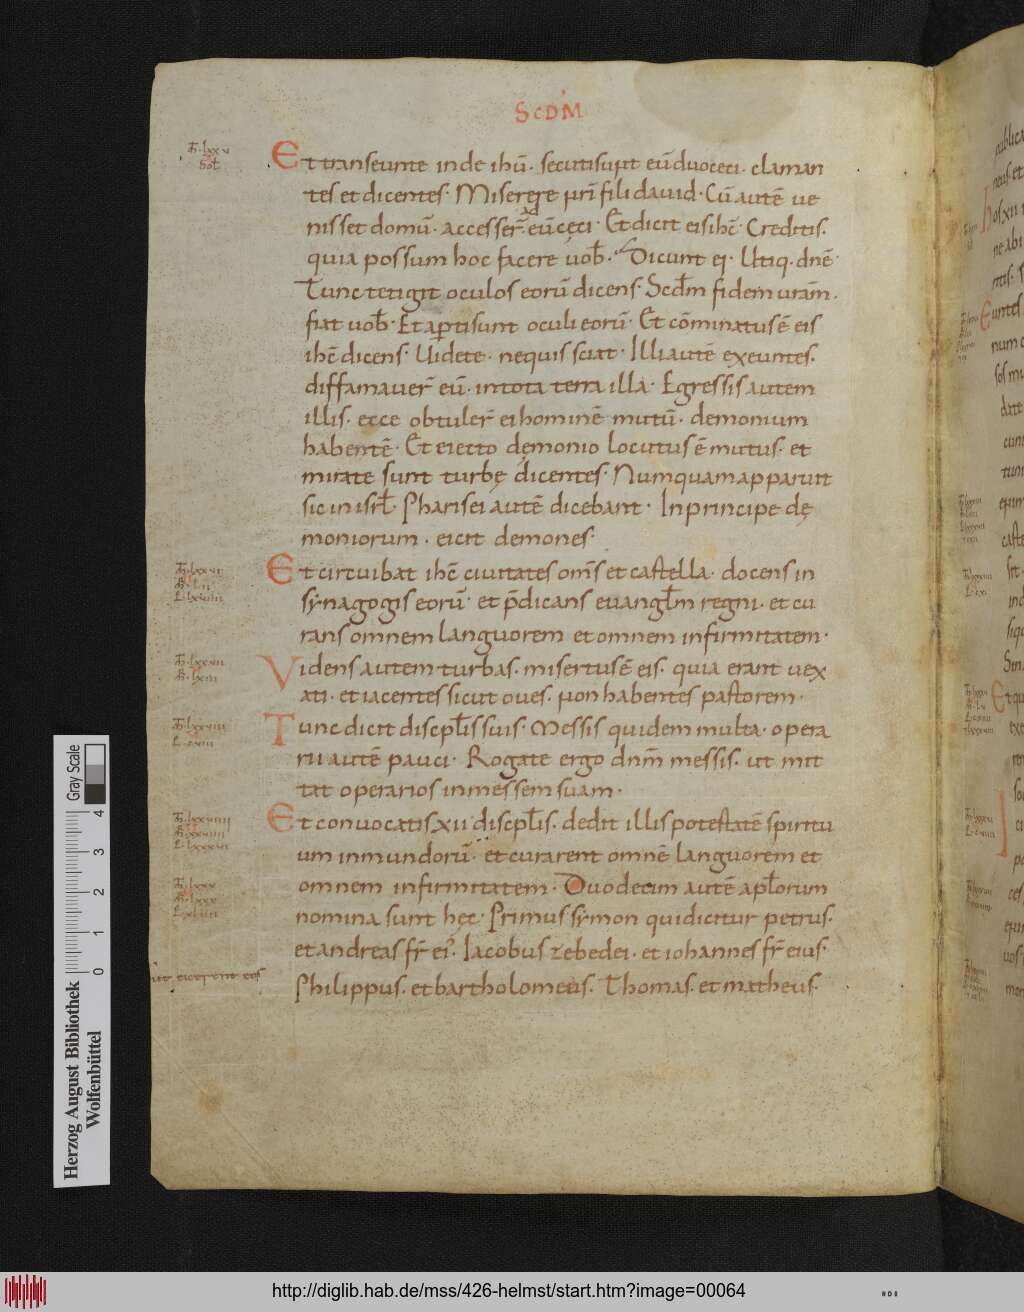 ScDM
Et transeunte inde ihū. secutisunt eū duo ceci. claman
tes et dicentes. Miserere nr̄i fili dauid. Cū autē ue
nisset domū. accesser̄ ad eū cęci. Et dicit eis ihc̄. Creditis.
quia possum hoc facere uob̄. Dicunt ei. Utiq. dnē.
Tunc tetigit oculos eorū dicens. Scd̄m fidem uram̄.
fiat uob̄. Et aperti sunt oculi eorū. Et cōminatus ē eis
ihc̄ dicens. Uidete. nequis sciat. Illi autē exeuntes.
diffamauer̄ eū. in tota terra illa. Egressis autem
illis. ecce obtuler̄ ei hominē mutū. demonium
habentē. Et eiecto dęmonio locutus ē mutus. et
mirate sunt turbę dicentes. Numquam apparuit
sic in isrł. Pharisei autē dicebant. In principe dę
moniorum. eicit demones.
Et circuibat ihc̄ ciuitates om̄s et castella. docens in
synagogis eorū. et p̄dicans euangłm regni. et cu
rans omnem languorem et omnem infirmitatem.
Videns autem turbas. misertus ē eis. quia erant uex
ati. et iacentes sicut oues. non habentes pastorem.
Tunc dicit discipłis suis. Messis quidem multa. opera
rii autē pauci. Rogate ergo dnm̄ messis. ut mit
tat operarios in messem suam.
Et conuocatis xii discipłis. dedit illis potestatē spiritu
um inmundorū. et curarent omnē languorem et
omnem infirmitatem. Duodecim autē apłorum
nomina sunt hęc. Primus symon qui dicitur petrus.
et andreas fr̄ ei'. Iacobus zebedei. et iohannes fr̄ eius.
Philippus. et bartholomeus. Thomas. et matheus.
ut eicerent eos
Gray Scale
4 3 2 1 0
Herzog August Bibliothek
Wolfenbüttel
http://diglib.hab.de/mss/426-helmst/start.htm?image=00064